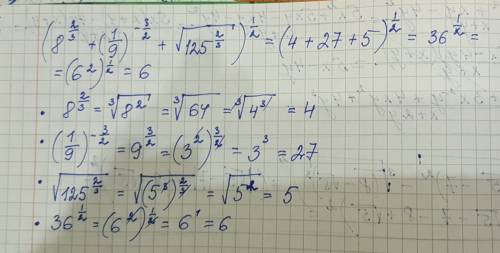 (8^(2/3) + (1/9)^(-3/2) + √(125^(2/3)))^(1/2) = (4 + 27 + 5)^(1/2) = 36^(1/2) =
= (6^2)^(1/2) = 6
• 8^(2/3) = ∛(8^2) = ∛64 = ∛(4^3) = 4
• (1/9)^(-3/2) = 9^(3/2) = (3^2)^(3/2) = 3^3 = 27
• √(125^(2/3)) = √((5^3)^(2/3)) = √(5^2) = 5
• 36^(1/2) = (6^2)^(1/2) = 6^1 = 6